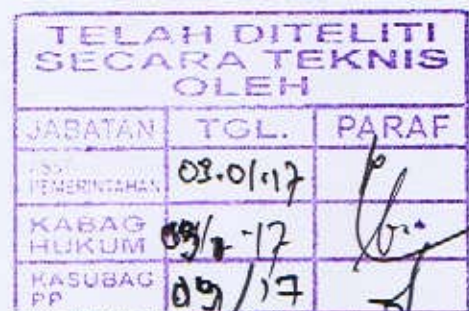 TELAH DITELITI
SECARA TEKNIS
OLEH
JABATAN TGL. PARAF
PEMERINTAHAN 03.01.17
KABAG
HUKUM
KASUBAG
PP